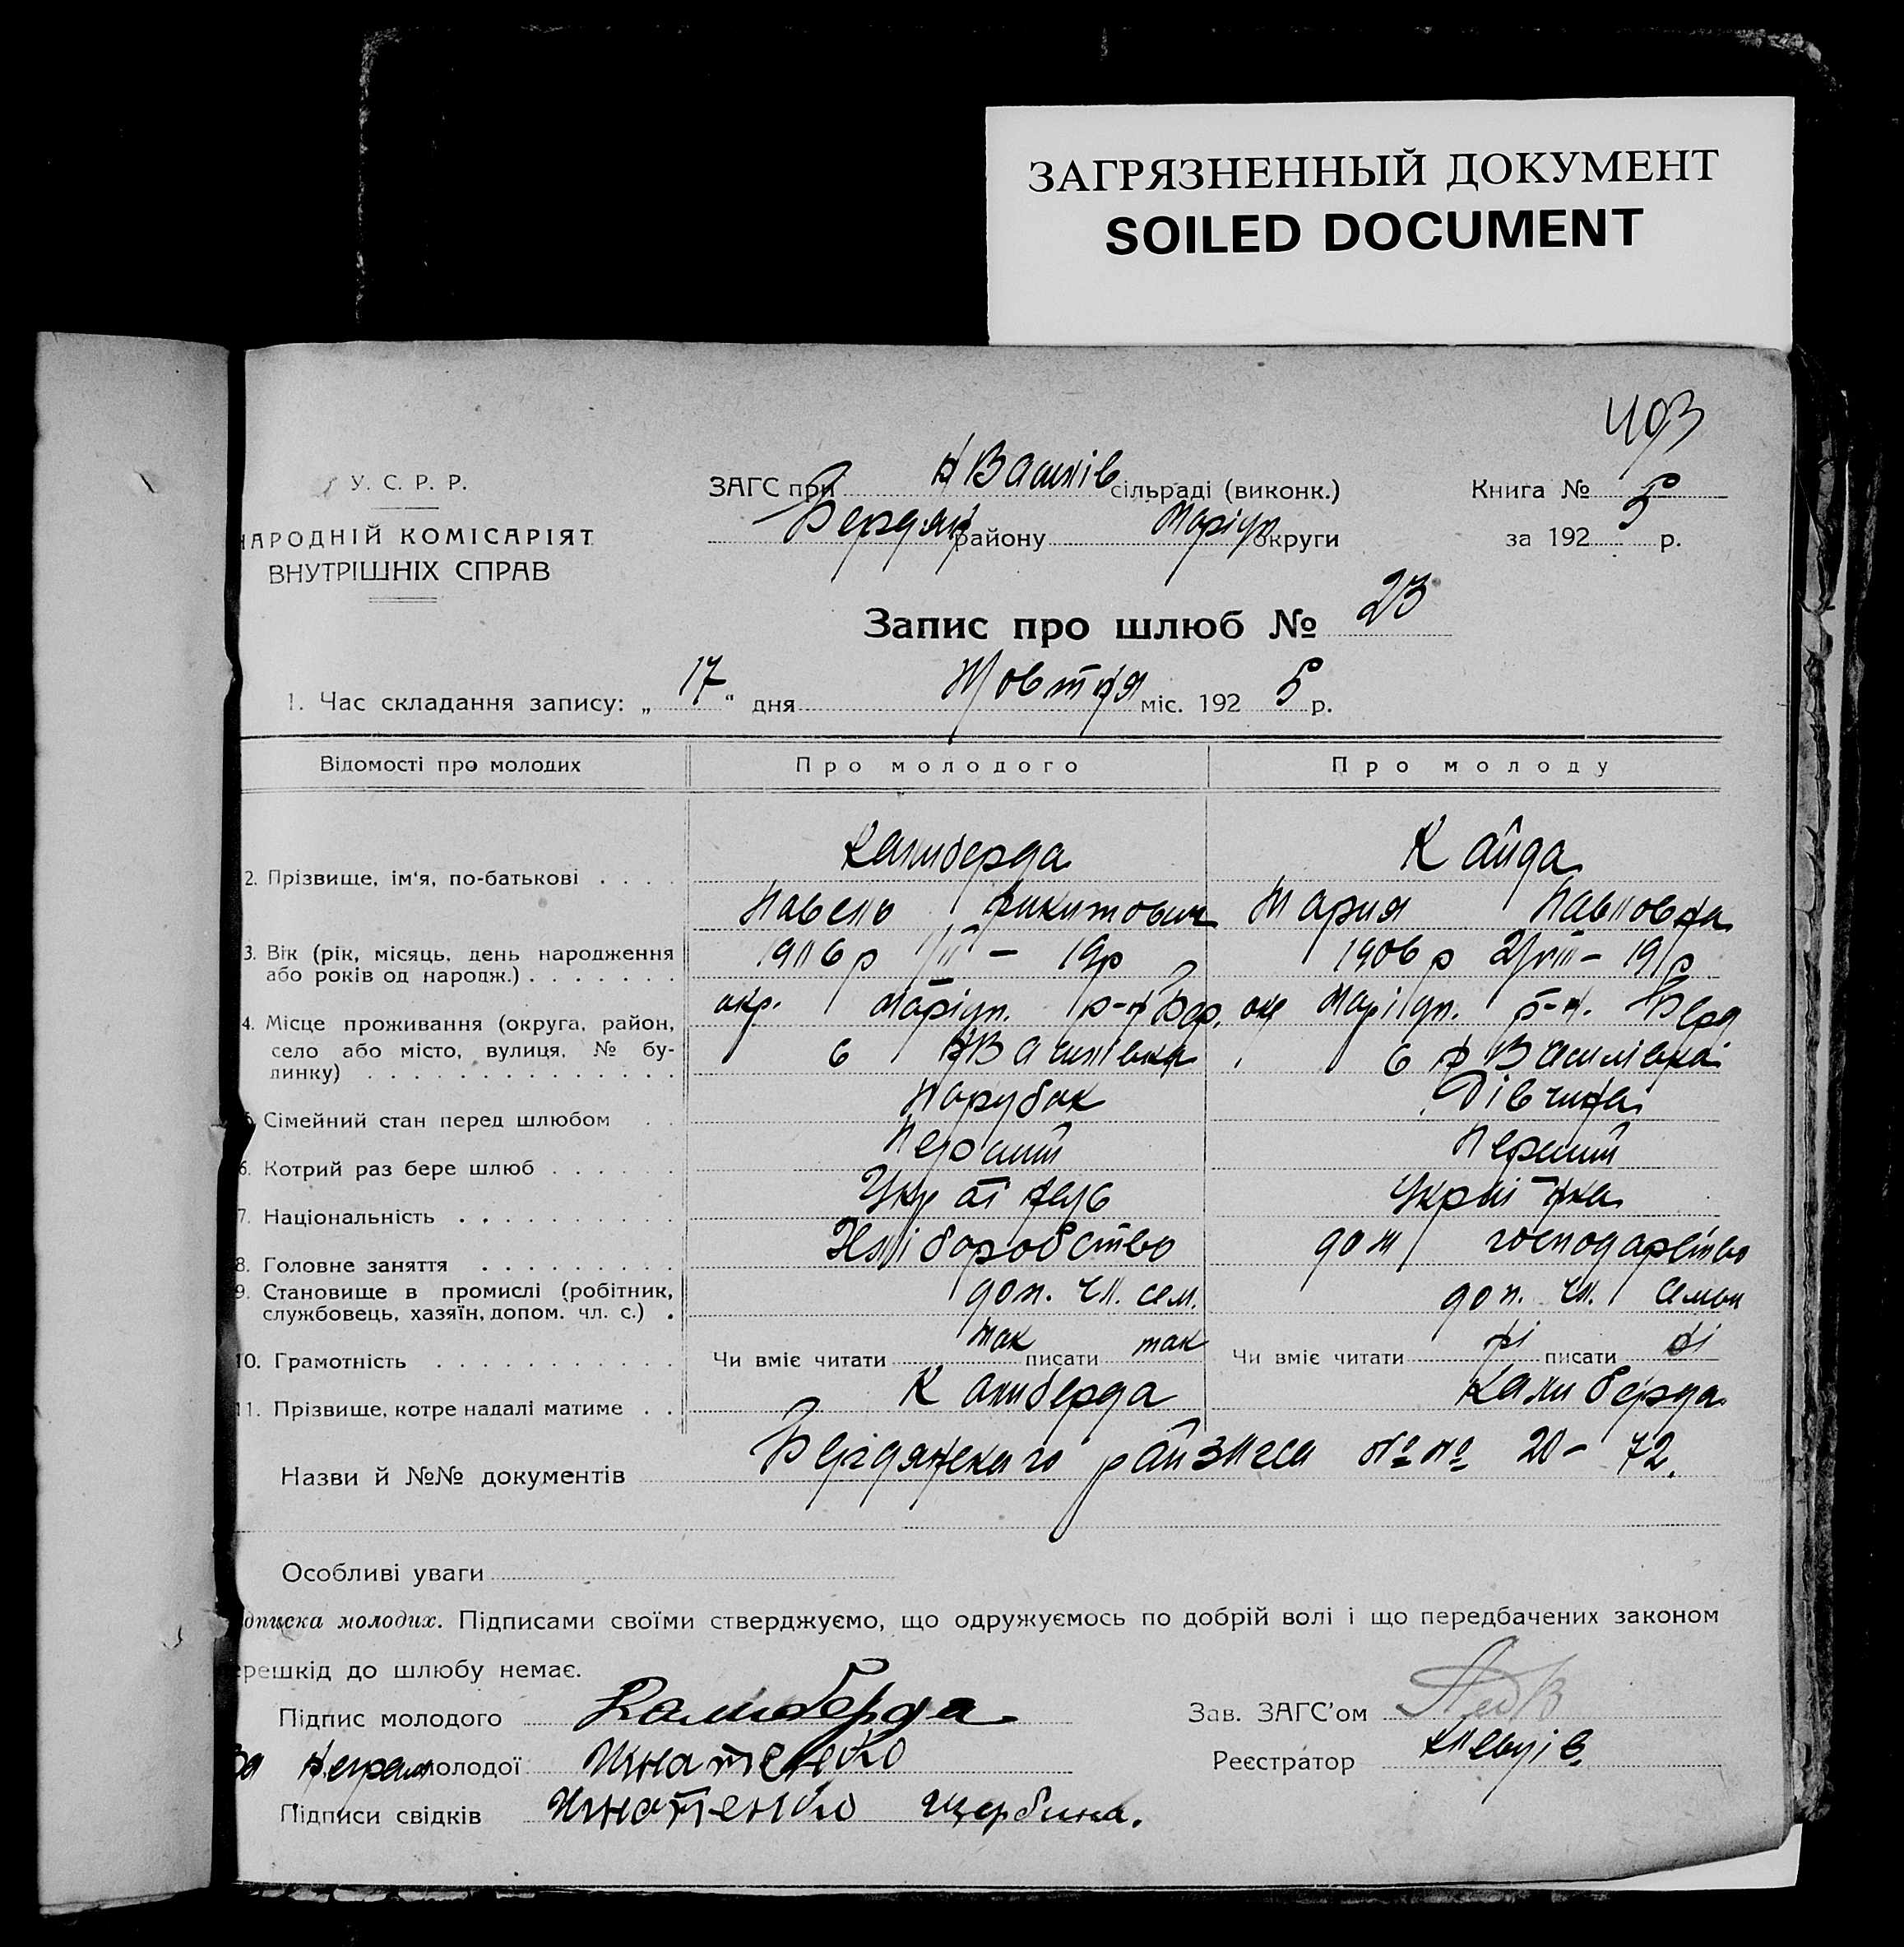 ЗАГРЯЗНЕННЫЙ ДОКУМЕНТ
SOILED DOCUMENT
493
У. С. Р. Р.
НАРОДНІЙ КОМІСАРІЯТ
ВНУТРІШНІХ СПРАВ
ЗАГС при НВасилів сільраді (виконк.)
Бердян району Маріуп округи
Книга № 5
за 192 5 р.
Запис про шлюб № 23
1. Час складання запису: „ 17 " дня Жовтня міс. 192 5 р.
Відомості про молодих Про молодого Про молоду
2. Прізвище, ім'я, по-батькові . . . . Калиберда Кайда
Павело Никитович Мария Павловна
3. Вік (рік, місяць, день народження або років од народж.) . . . . . . . 19р 1906 р 19р
4. Місце проживання (округа, район, село або місто, вулиця, № будинку) . . . . . . . . . . . . . . окр. Маріуп. р-н Бер. окр Маріуп. р-н. Берд
с НВасилівка с НВасилівка
5. Сімейний стан перед шлюбом . . Парубок Дівчина
6. Котрий раз бере шлюб . . . . . . Перший Перший
7. Національність . . . . . . . . . . Українець Українка
8. Головне заняття . . . . . . . . . Хліборобство дом господарство
9. Становище в промислі (робітник, службовець, хазяїн, допом. чл. с.) . доп. чл. сем. доп. чл. семьи
10. Грамотність . . . . . . . . . . . Чи вміє читати так писати так Чи вміє читати ні писати ні
11. Прізвище, котре надалі матиме . . Калиберда Калиберда
Назви й №№ документів Бердянскаго райзагса №№ 20 – 72.
Особливі уваги
дписка молодих. Підписами своїми стверджуємо, що одружуємось по добрій волі і що передбачених законом
ерешкід до шлюбу немає.
Підпис молодого Калиберда Зав. ЗАГС'ом
За неграм молодої Игнатенко Реєстратор
Підписи свідків Игнатенко Щербина.